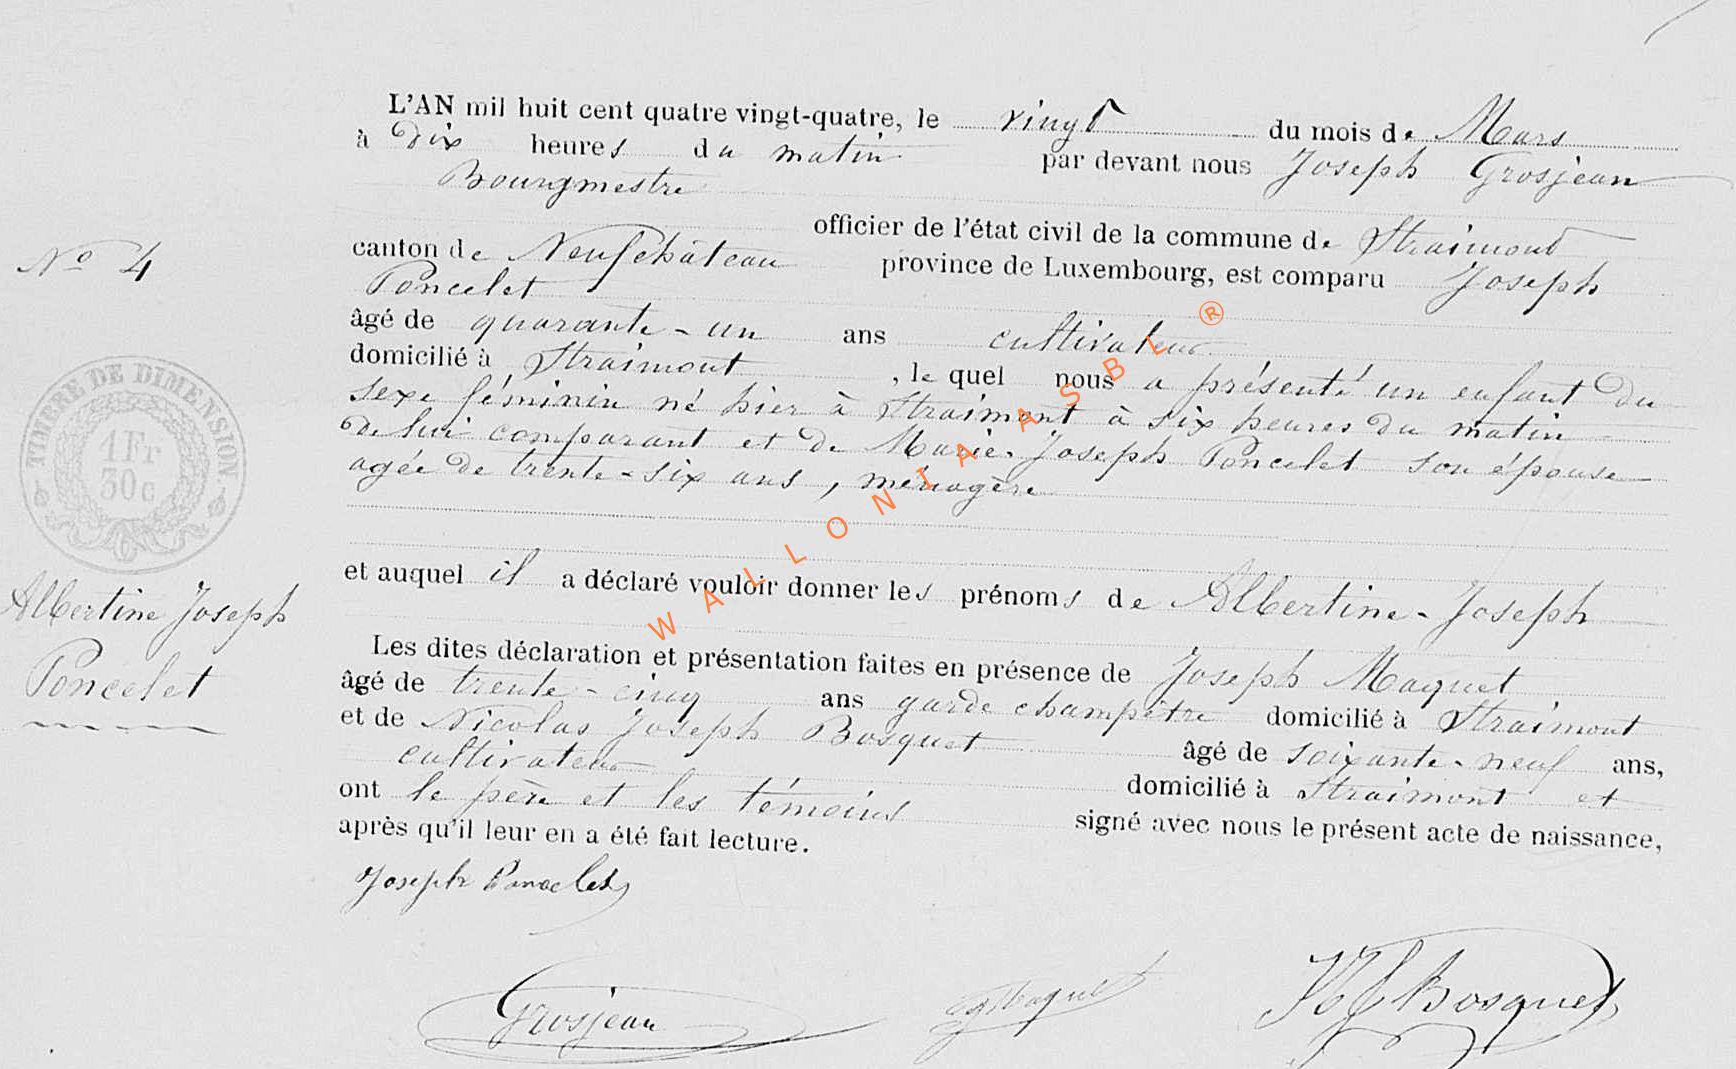 L'AN mil huit cent quatre vingt-quatre, le vingt du mois de Mars
à Dix heures du matin par devant nous Joseph Grosjean
Bourgmestre
officier de l'état civil de la commune de Straimont
canton de Neufchâteau province de Luxembourg, est comparu Joseph
Poncelet
âgé de quarante-un ans cultivateur
domicilié à Straimont, lequel nous a présenté un enfant du
sexe féminin né hier à Straimont à six heures du matin
de lui comparant et de Marie-Joseph Poncelet son épouse
agée de trente-six ans, ménagère
et auquel il a déclaré vouloir donner les prénoms de Albertine-Joseph
Les dites déclaration et présentation faites en présence de Joseph Maquet
âgé de trente-cinq ans garde champêtre domicilié à Straimont
et de Nicolas Joseph Bosquet âgé de soixante-neuf ans,
cultivateur domicilié à Straimont et
ont le père et les témoins signé avec nous le présent acte de naissance,
après qu'il leur en a été fait lecture.
Joseph Poncelet
Grosjean
Maquet
Bosquet
No 4
TIMBRE DE DIMENSION
1 Fr
30c
Albertine Joseph
Poncelet
WALLONIA ASBL ®